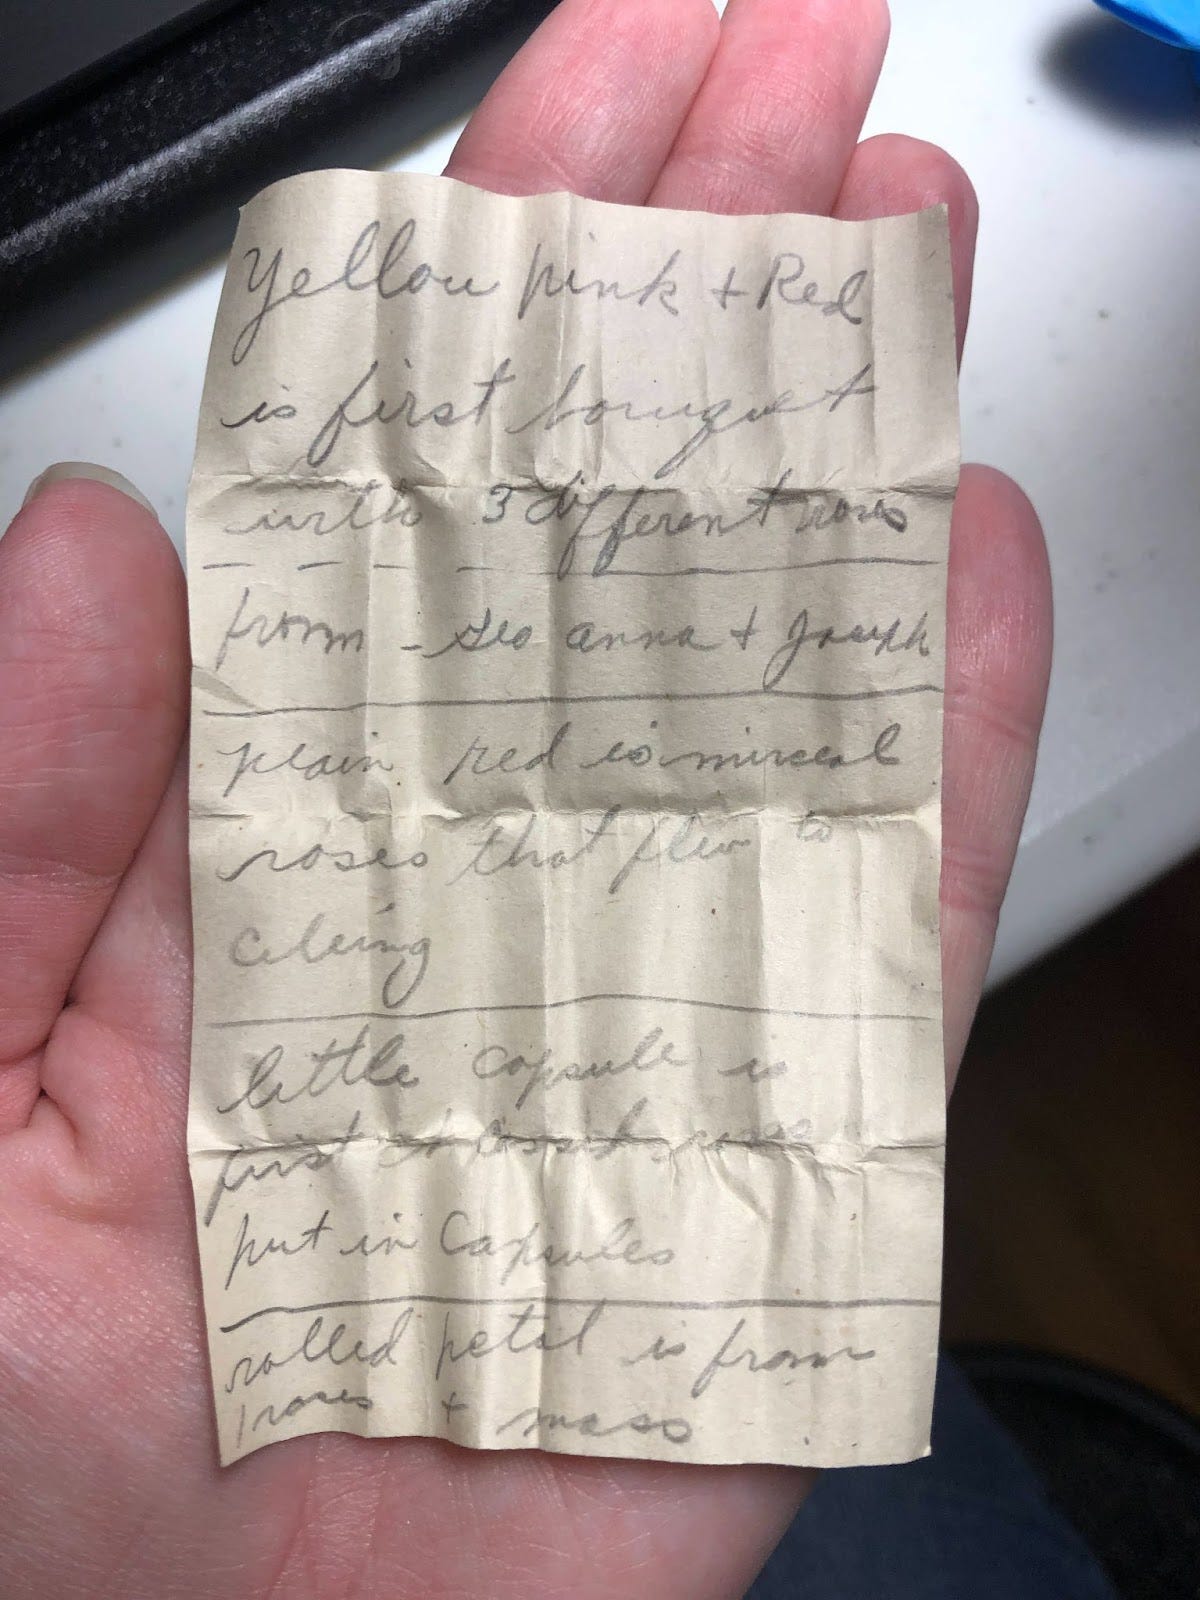 Yellow pink + Red
is first bouquet
with 3 different roses
from - Leo anna + Joseph
plain red is mirceal
roses that flew to
cileing
little capsule is
first
put in Capsules
rolled petal is from
roses + mass